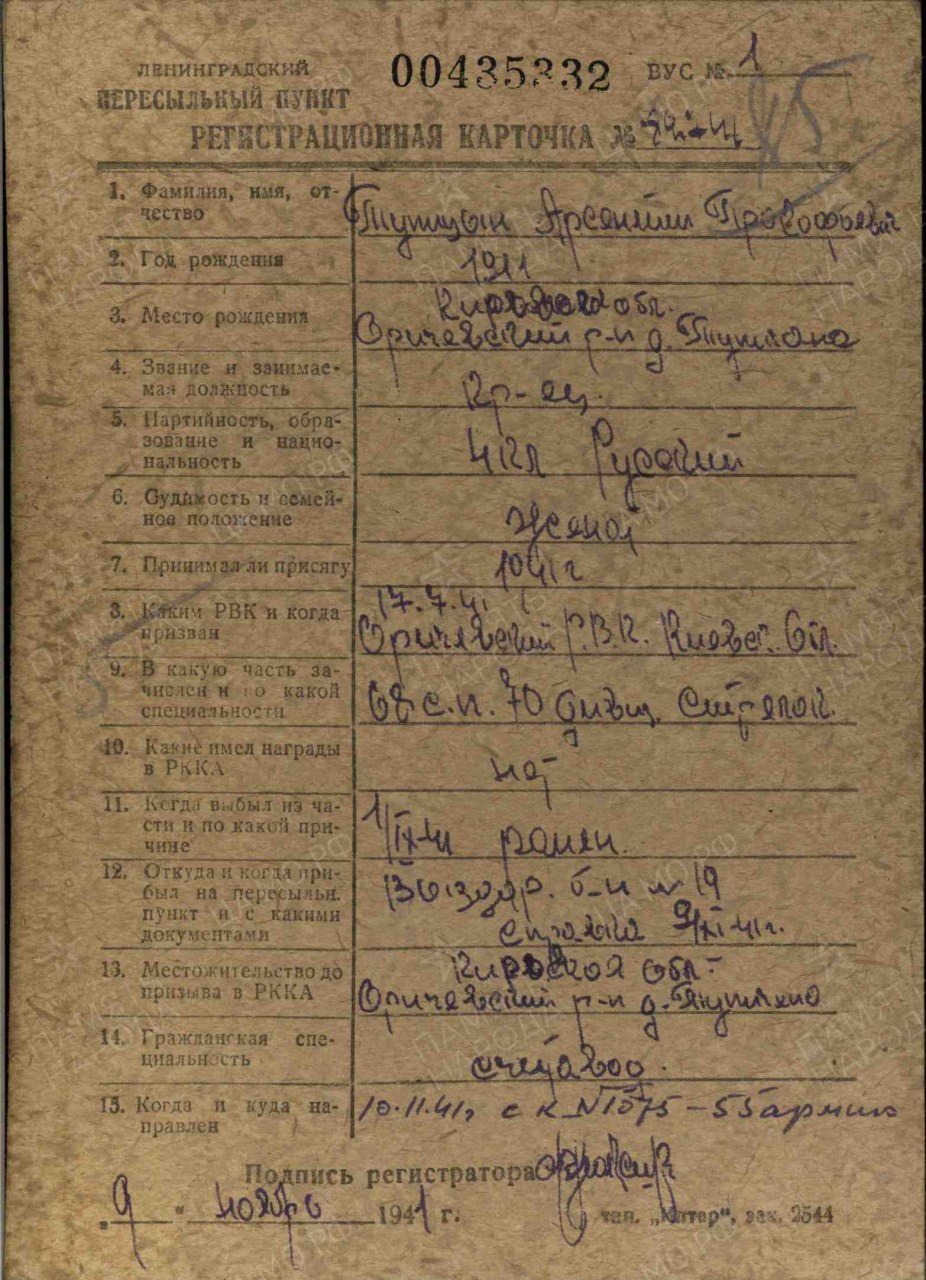 ЛЕНИНГРАДСКИЙ
ПЕРЕСЫЛЬНЫЙ ПУНКТ
00435332
ВУС № 1
85
РЕГИСТРАЦИОННАЯ КАРТОЧКА №
1. Фамилия, имя, отчество
Тупицын Арсентий Прокофьевич
2. Год рождения
1911
3. Место рождения
Кировская обл.
Оричевский р-н д.
4. Звание и занимаемая должность
Кр-ец.
5. Партийность, образование и национальность
4 кл Русский
6. Судимость и семейное положение
Женат
7. Принимал ли присягу
1941 г
8. Каким РВК и когда призван
17.7.41 г
Оричевский Р.В.К. Кировс. Обл.
9. В какую часть зачислен и по какой специальности
68 с.п. 70 дивиз. Стрелок.
10. Какие имел награды в РККА
нет
11. Когда выбыл из части и по какой причине
1/IX-41 ранен.
12. Откуда и когда прибыл на пересыльн. пункт и с какими документами
Выздор. б-н № 19
справка 9/XI-41г.
13. Местожительство до призыва в РККА
Кировская обл.
Оричевский р-н д.
14. Гражданская специальность
счетовод.
15. Когда и куда направлен
10.11.41г с к N 1575 - 55 армию
Подпись регистратора
„9" ноябрь 1941 г.
тип. „Питер", зак. 2544